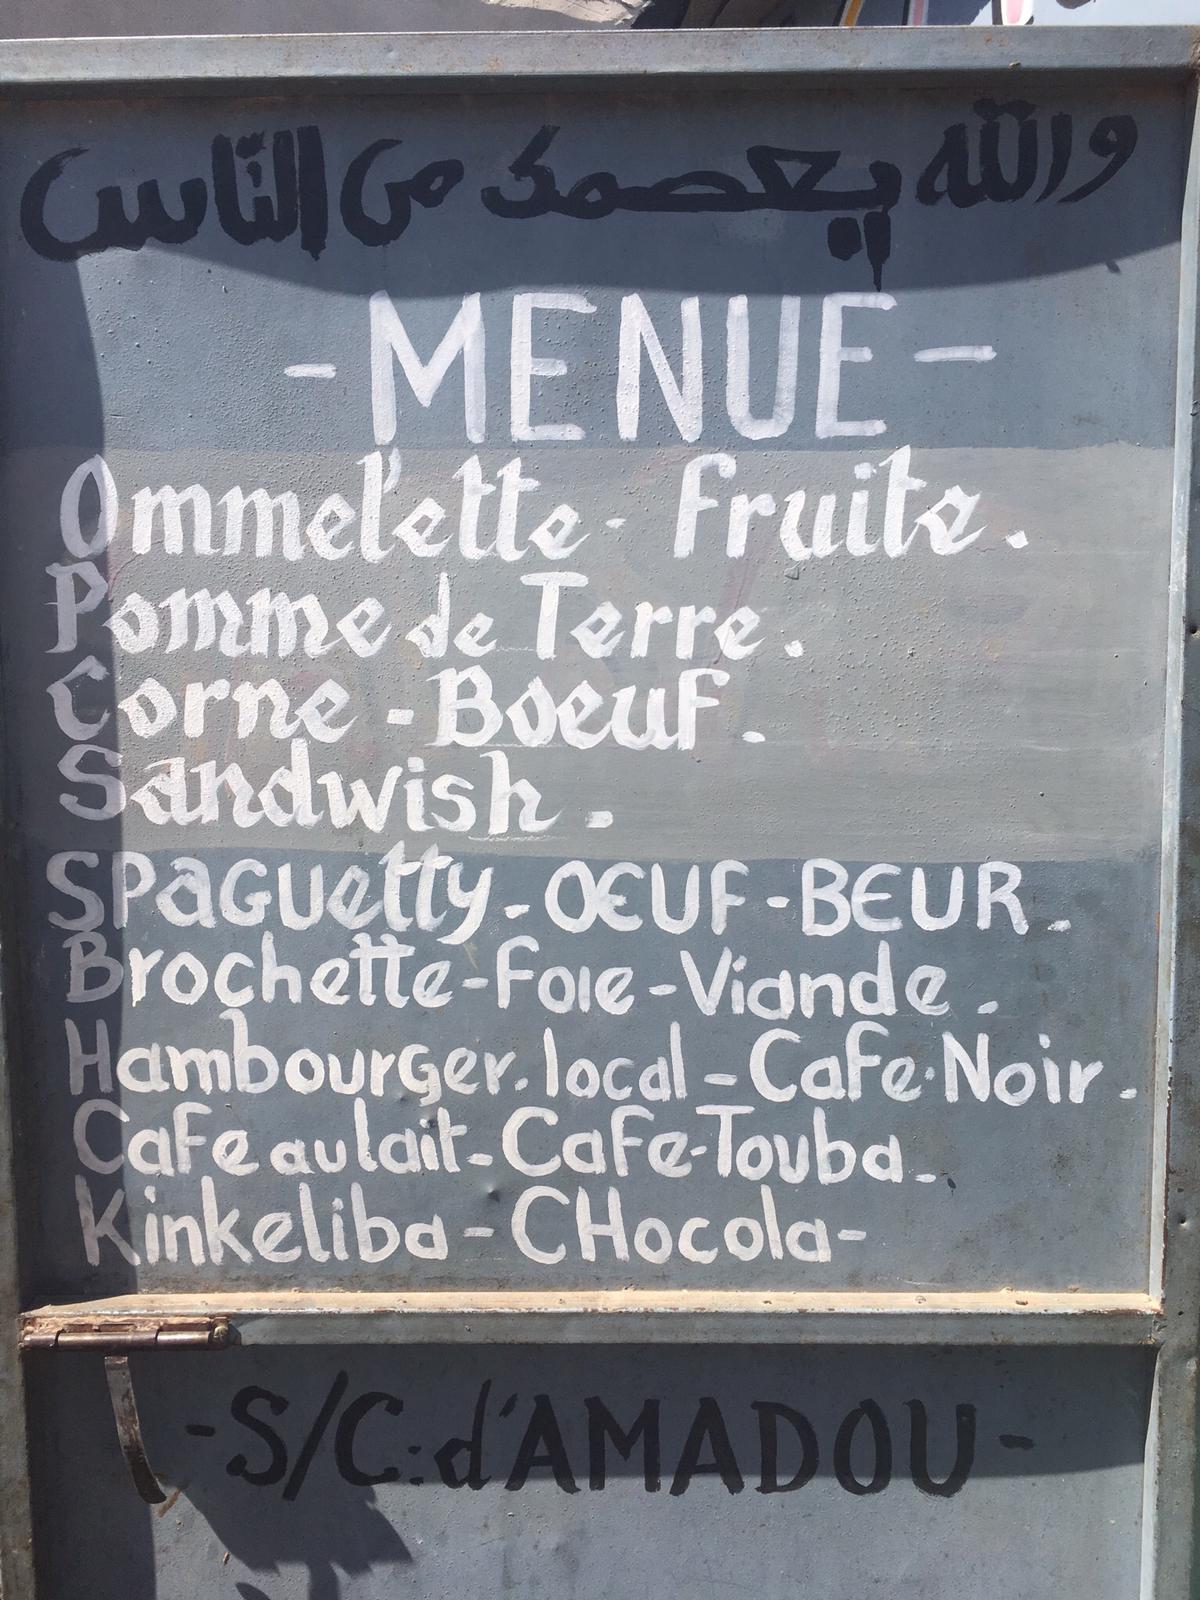 والله يعصمك من النّاس
- MENUE -
Ommel'ette - Fruite.
Pomme de Terre.
Corne - Boeuf.
Sandwish.
SPAGUetty - OEUF - BEUR.
Brochette - Foie - Viande.
Hambourger. local - Cafe Noir.
Cafe au lait - Cafe-Touba.
Kinkeliba - CHocola -
- S/C: d'AMADOU -